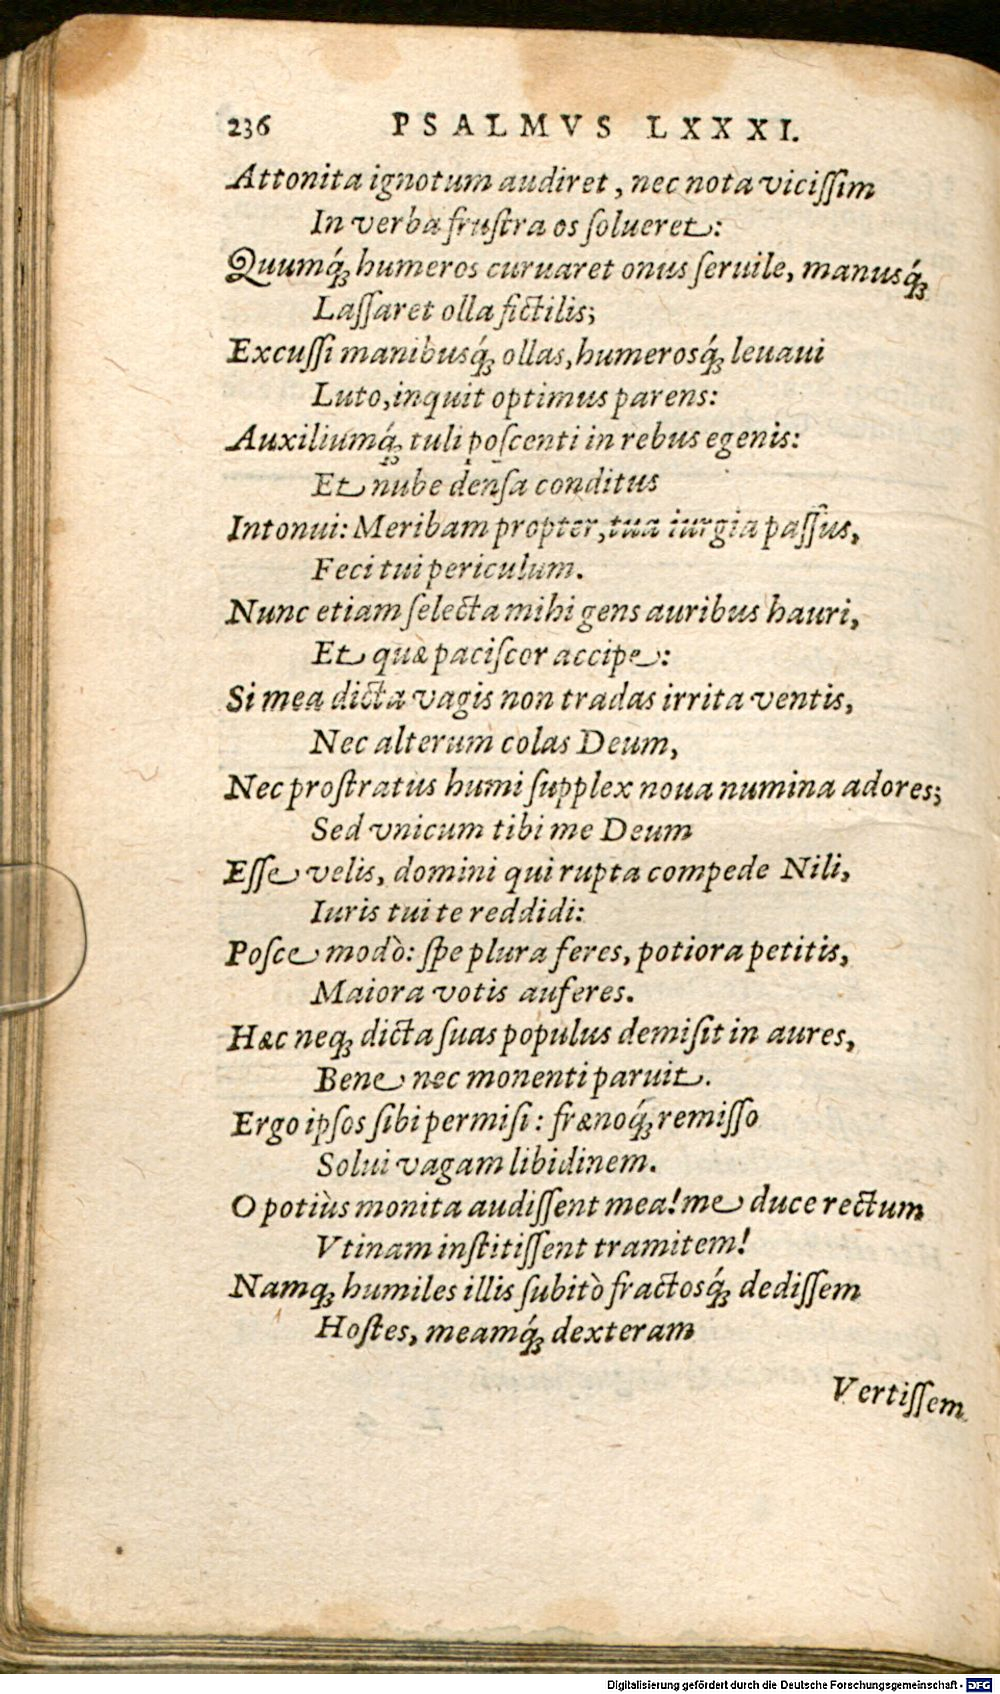 236 PSALMVS LXXXI.
Attonita ignotum audiret, nec nota viciſſim
In verba fruſtra os ſolueret:
Quumq́ꝫ humeros curuaret onus ſeruile, manusq́ꝫ
Laſſaret olla fictilis;
Excuſſi manibusq́ꝫ ollas, humerosq́ꝫ leuaui
Luto, inquit optimus parens:
Auxiliumq́ꝫ tuli poſcenti in rebus egenis:
Et nube denſa conditus
Intonui: Meribam propter, tua iurgia paſſus,
Feci tui periculum.
Nunc etiam ſelecta mihi gens auribus hauri,
Et quæ paciſcor accipe:
Si mea dicta vagis non tradas irrita ventis,
Nec alterum colas Deum,
Nec proſtratus humi ſupplex noua numina adores;
Sed vnicum tibi me Deum
Eſſe velis, domini qui rupta compede Nili,
Iuris tui te reddidi:
Poſce modò: ſpe plura feres, potiora petitis,
Maiora votis auferes.
Hæc neqꝫ dicta ſuas populus demiſit in aures,
Bene nec monenti paruit.
Ergo ipſos ſibi permiſi: frænoq́ꝫ remiſſo
Solui vagam libidinem.
O potiùs monita audiſſent mea! me duce rectum
Vtinam inſtitiſſent tramitem!
Namqꝫ humiles illis ſubitò fractosq́ꝫ dediſſem
Hoſtes, meamq́ꝫ dexteram
Vertiſſem
Digitalisierung gefördert durch die Deutsche Forschungsgemeinschaft - DFG